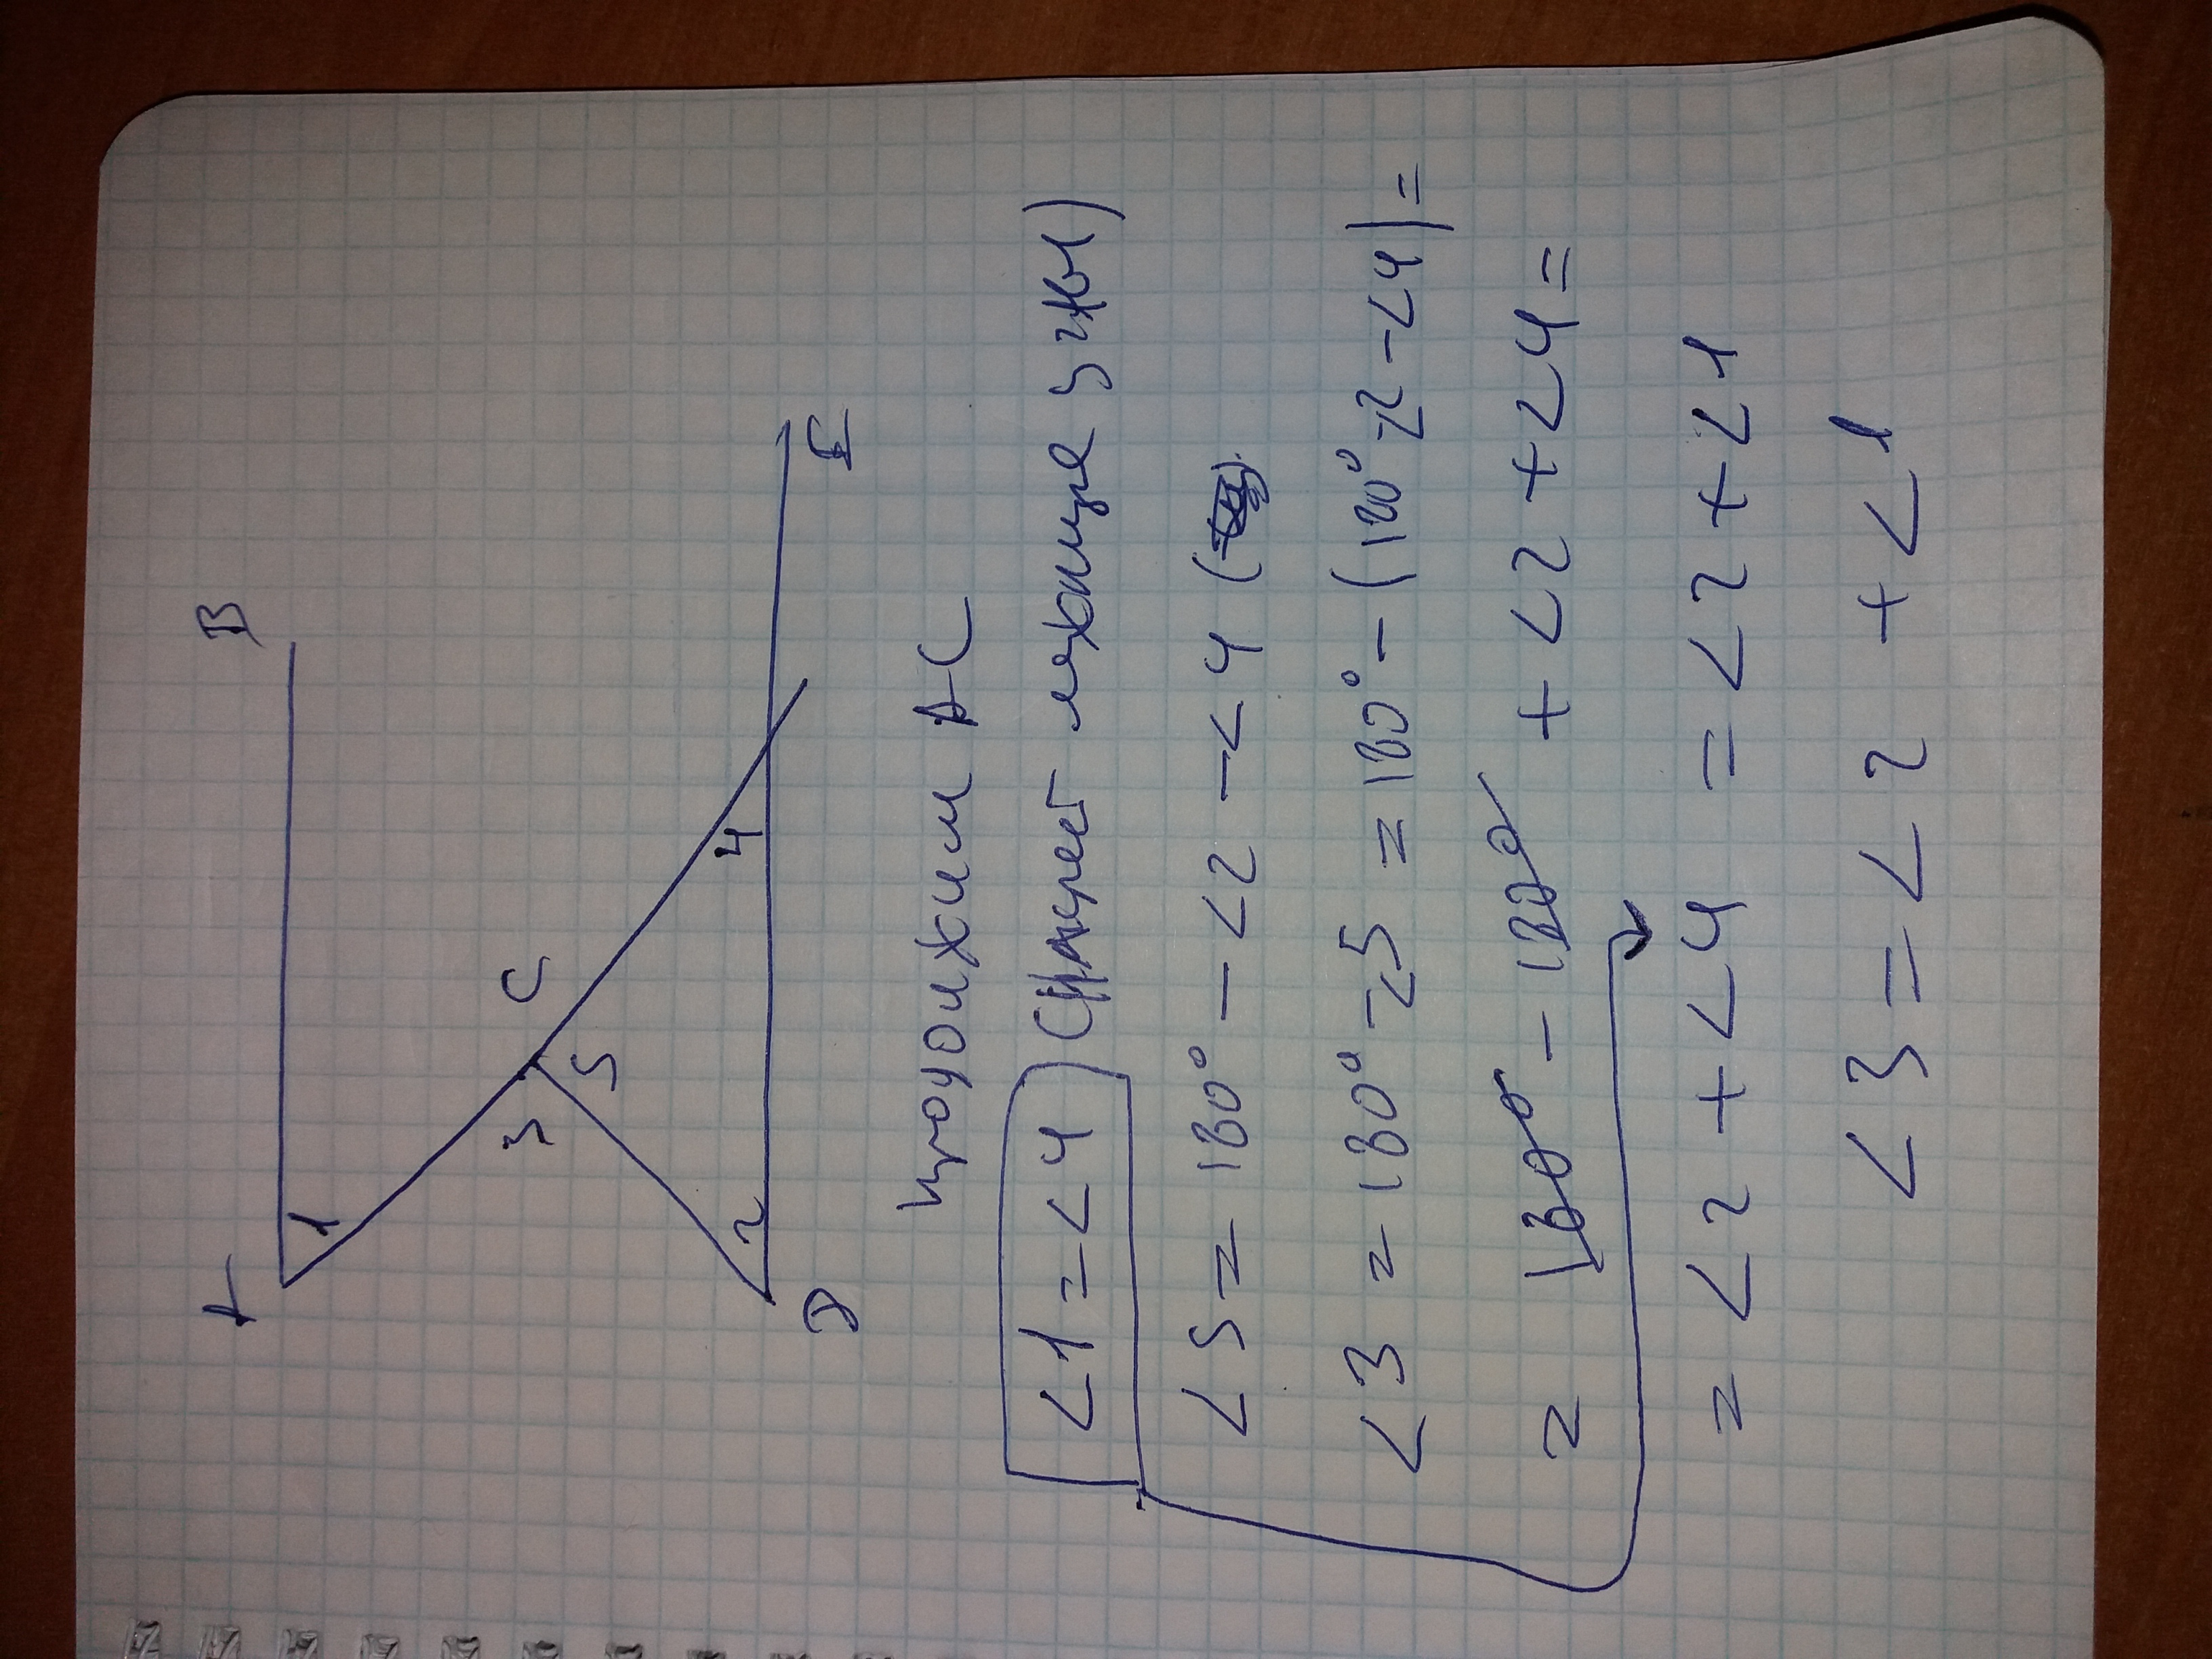 A B
1
C
3 5
2 4
D E
продолжим AC
∠1 = ∠4 (накрест лежащие углы)
∠5 = 180° - ∠2 - ∠4
∠3 = 180° - ∠5 = 180° - (180° - ∠2 - ∠4) =
= 180° - 180° + ∠2 + ∠4 =
= ∠2 + ∠4 = ∠2 + ∠1
∠3 = ∠2 + ∠1